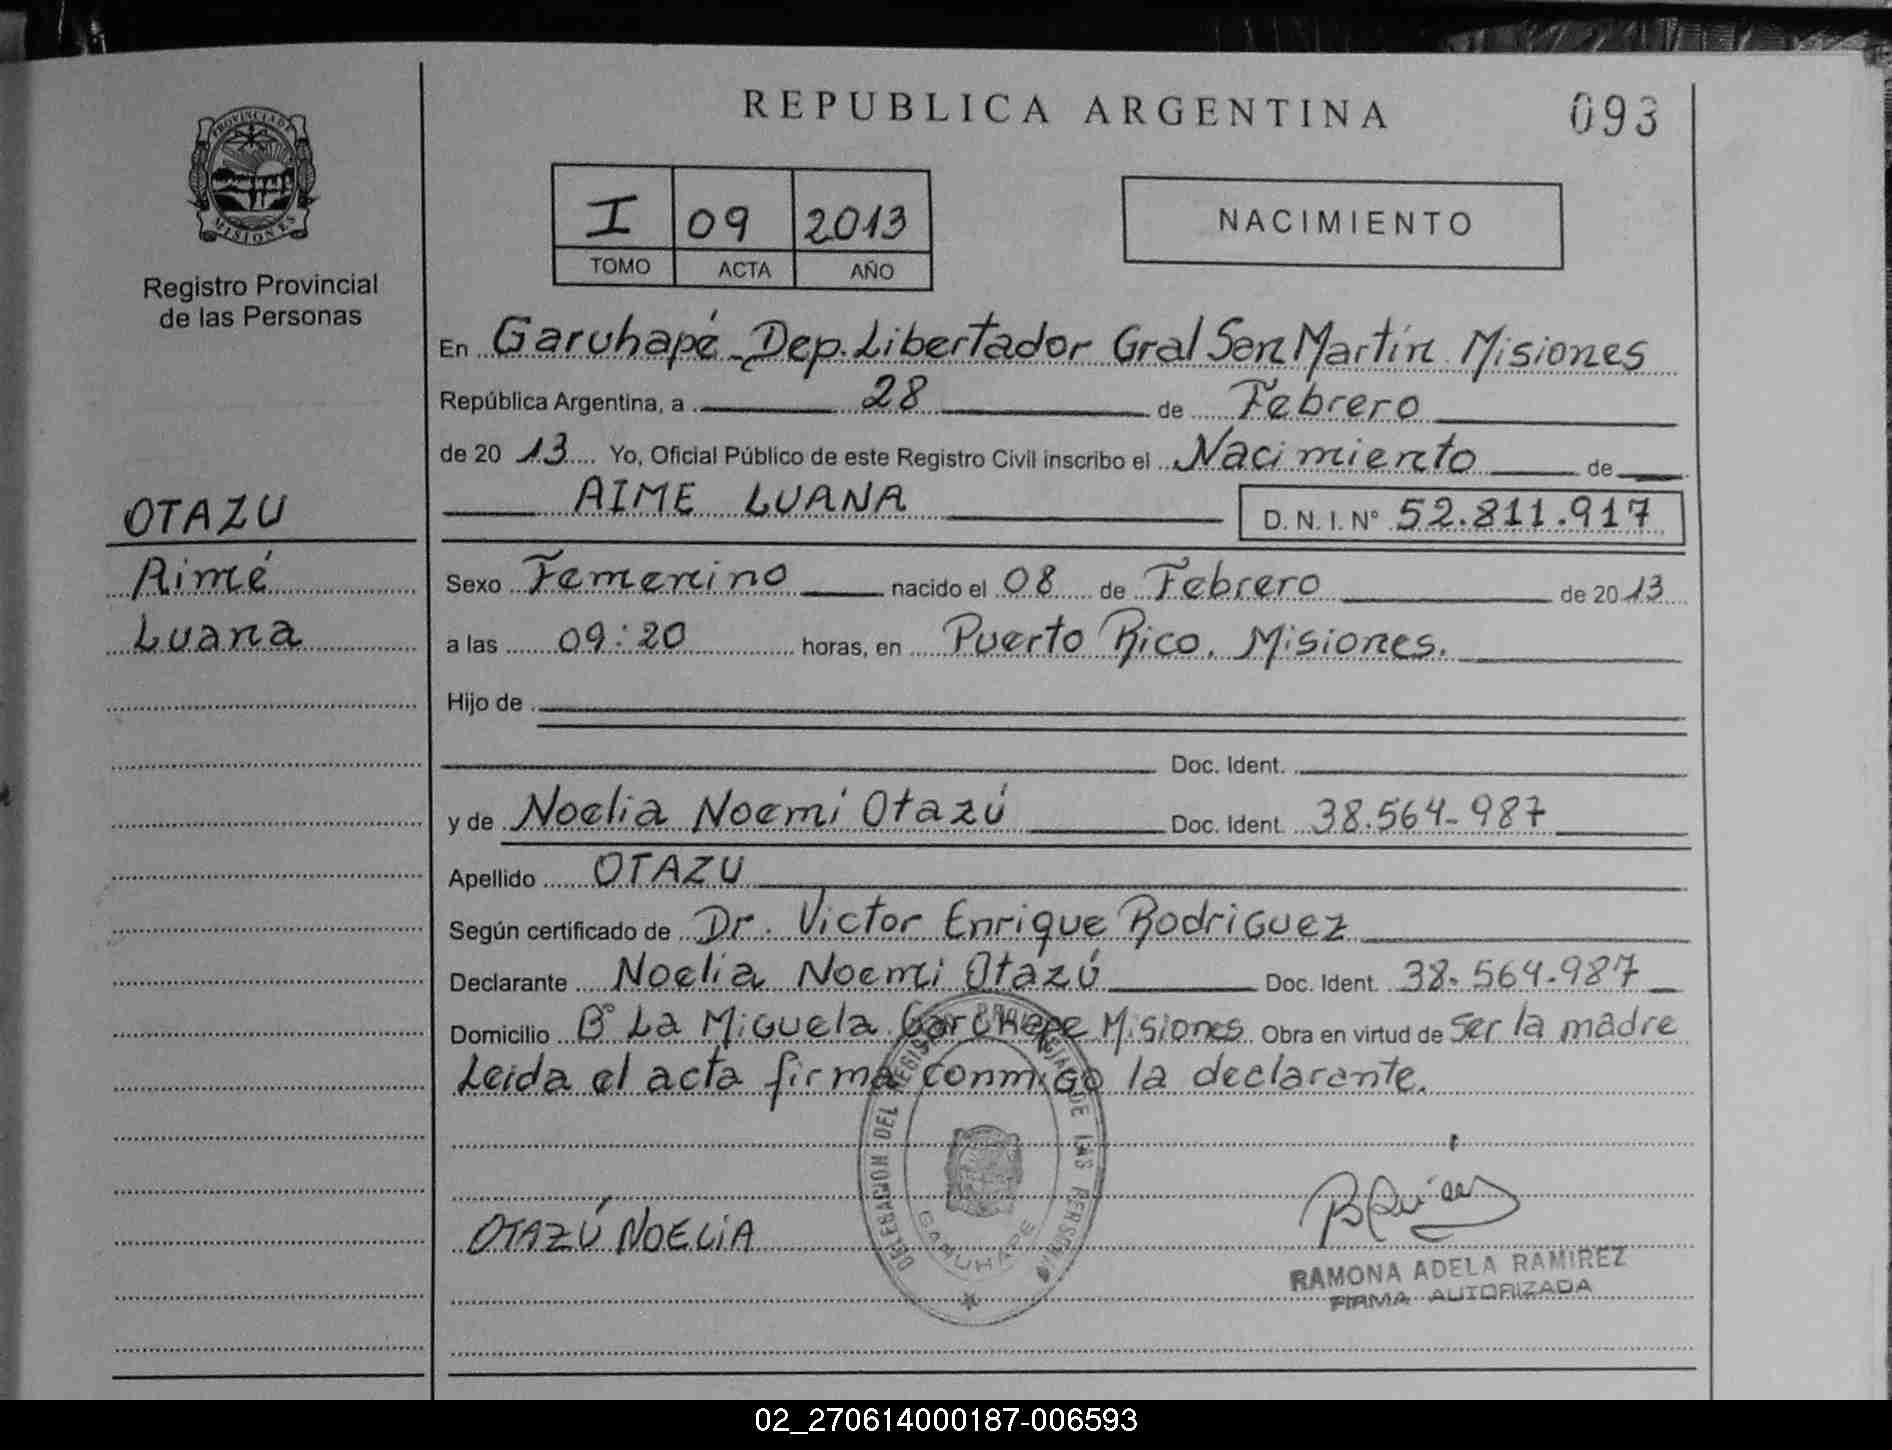 REPUBLICA ARGENTINA
093
PROVINCIA DE
MISIONES
Registro Provincial
de las Personas
I 09 2013
TOMO ACTA AÑO
NACIMIENTO
En Garuhapé Dep. Libertador Gral San Martín Misiones
República Argentina, a 28 de Febrero
de 20 13 Yo, Oficial Público de este Registro Civil inscribo el Nacimiento de
AIME LUANA D. N. I. N° 52.811.917
OTAZU
Aimé
Luana
Sexo Femenino nacido el 08 de Febrero de 20 13
a las 09:20 horas, en Puerto Rico. Misiones.
Hijo de
Doc. Ident.
y de Noelia Noemí Otazú Doc. Ident. 38.564-987
Apellido OTAZU
Según certificado de Dr. Victor Enrique Rodriguez
Declarante Noelia Noemi Otazú Doc. Ident. 38.564.987
Domicilio B° La Miguela Misiones Obra en virtud de ser la madre
Leida el acta firma conmigo la declarante.
DELEGACION DEL REGISTRO PROVINCIAL DE LAS PERSONAS
GARUHAPE
OTAZÚ NOELIA
RAMONA ADELA RAMIREZ
FIRMA AUTORIZADA
02_270614000187-006593